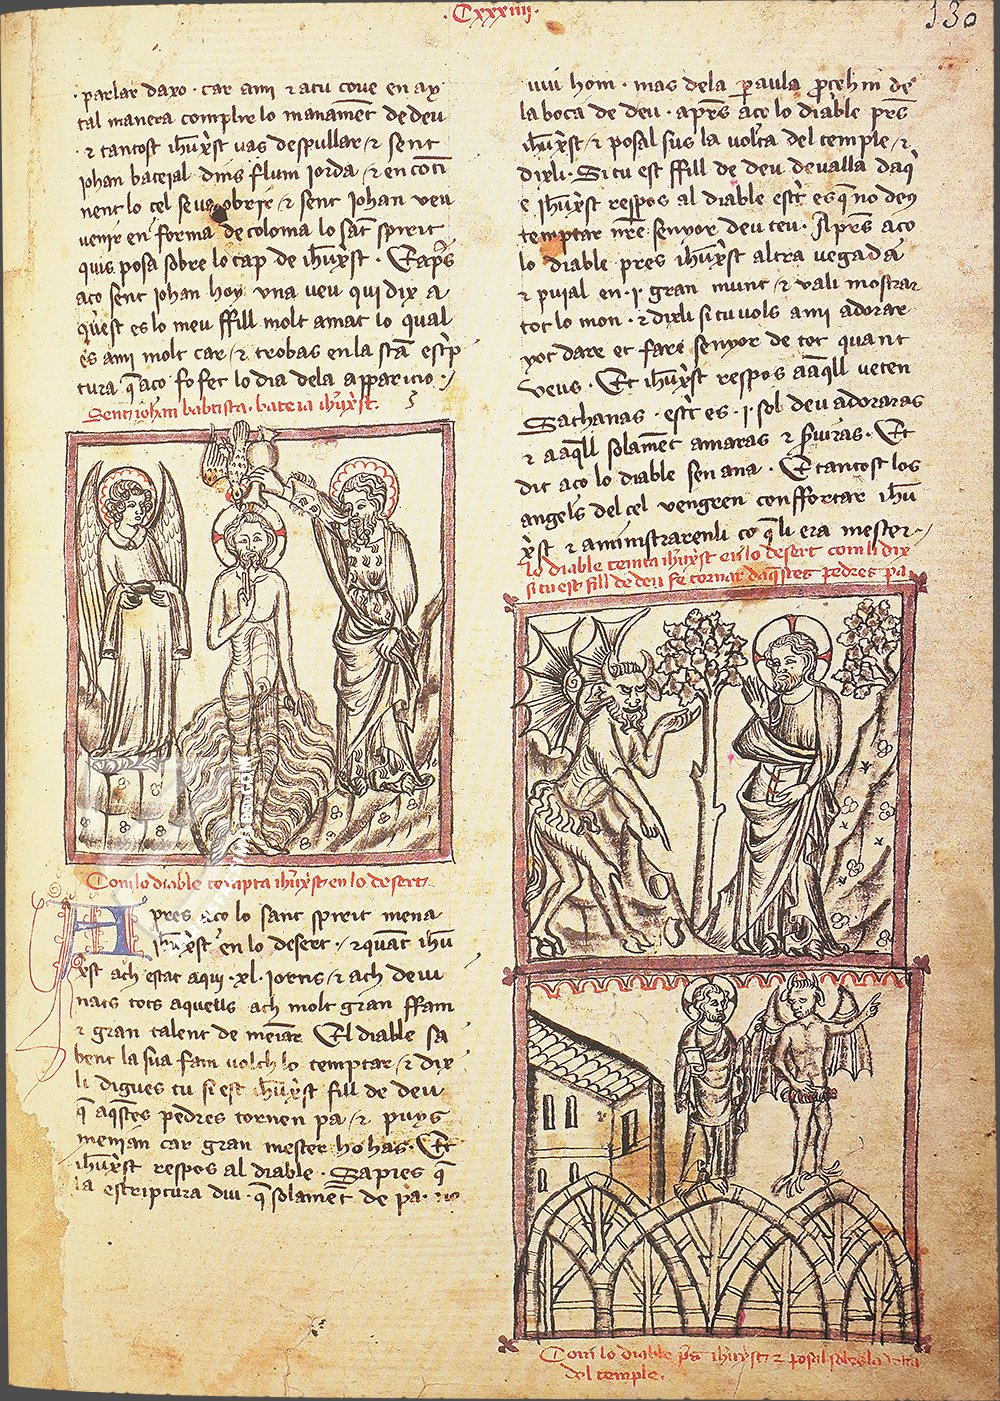 .Cxxxiiii.
130
parlar daxo · car ami ⁊ atu coue en ay
tal manera complir lo manamēt de deu
⁊ tantost ih̄u xp̄st uas despullar ⁊ sent
johan batejal dins flum jorda ⁊ en cōti
nent lo cel se us obrir ⁊ sent johan veu
uenir en forma de coloma lo sāt spirit
quis posa sobre lo cap de ih̄u xp̄st · E apr̄s
aco sent johan hoy vna veu qui dix a
quest es lo meu ffill molt amat lo qual
es ami molt car ⁊ trobas en la stā escrip
tura q̄ aco fo fet lo dia dela apparicio
Sent johan babtista · bateia ih̄u xp̄st ·
Com lo diable tempta ih̄u xp̄st en lo desert
Apres aco lo sant spirit mena
ih̄u xp̄st en lo desert · ⁊ quāt ih̄u
xp̄st ach estat aqui · xl · jorns ⁊ ach deiu
nats tots aquells ach molt gran ffam
⁊ gran talent de mēiar El diable sa
bent la sua fam volch lo temptar ⁊ dix
li digues tu si est ih̄u xp̄st fill de deu
q̄ aq̄stes pedres tornen pa ⁊ puys
menian car gran mester ho has · Et
ih̄u xp̄st respos al diable · Sapies q̄
la escriptura diu · q̄ solamēt de pa ·
uiu hom · mas dela paraula procehin de
la boca de deu · apr̄s aco lo diable pr̄s
ih̄u xp̄st ⁊ posal sus la volta del temple ⁊
dixli · Si tu est ffill de deu deualla daq̄
e ih̄u xp̄st respos al diable escrit es q̄ no deu
temptar nr̄e senyor deu teu · Apr̄s aco
lo diable pres ih̄u xp̄st altra vegada
⁊ puial en · j · gran munt ⁊ vali mostrar
tot lo mon · ⁊ dixli si tu vols ami adorar
yot dare et fare senyor de tot quant
veus · Et ih̄u xp̄st respos a aq̄ll veten
Sathanas · escrit es · j · sol deu adoraras
⁊ a aq̄ll solamēt amaras ⁊ s̄uiras · Et
dit aco lo diable sen ana · Et tantost los
angels del cel vengren conffortar ih̄u
xp̄st ⁊ aministrarenli co q̄ li era mester
lo diable temta ih̄u xp̄st en lo desert com li dix
si tu est fill de deu fe tornar daq̄stes pedres pa
Com lo diable pr̄s ih̄u xp̄st ⁊ posal sobre la volta
del temple ·